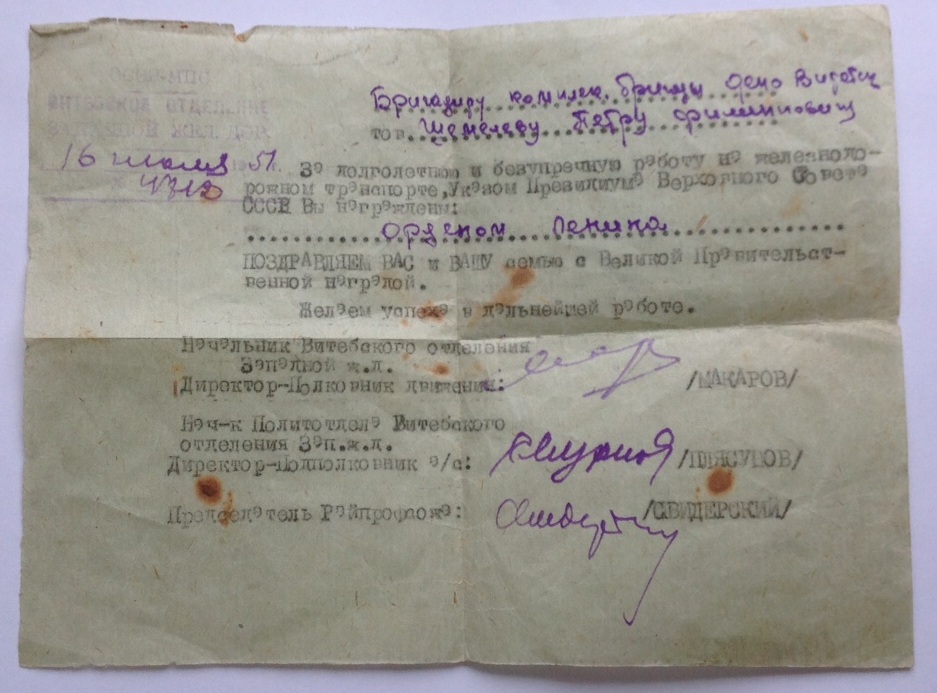 Бригадиру комплек. бригады Депо Витебск
тов. Шемелеву Петру Филипповичу
16 июля 51.
За долголетнюю и безупречную работу на железнодо-
рожном транспорте, Указом Президиума Верховного Совета
СССР Вы награждены:
Орденом Ленина
ПОЗДРАВЛЯЕМ ВАС и ВАШУ семью с Великой Правительст-
венной наградой.
Желаем успеха в дальнейшей работе.
Начальник Витебского отделения
Западной ж.д.
Директор-Полковник движения: /МАКАРОВ/
Нач-к Политотдела Витебского
отделения Зап.ж.д.
Директор-Подполковник а/с: /ПЛЯСУНОВ/
Председатель Райпрофсожа: /СВИДЕРСКИЙ/